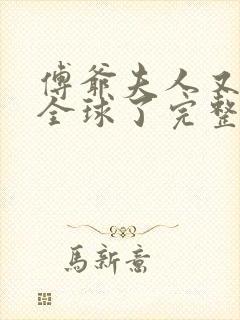 傅爺夫人又
全球了完整
馬新意